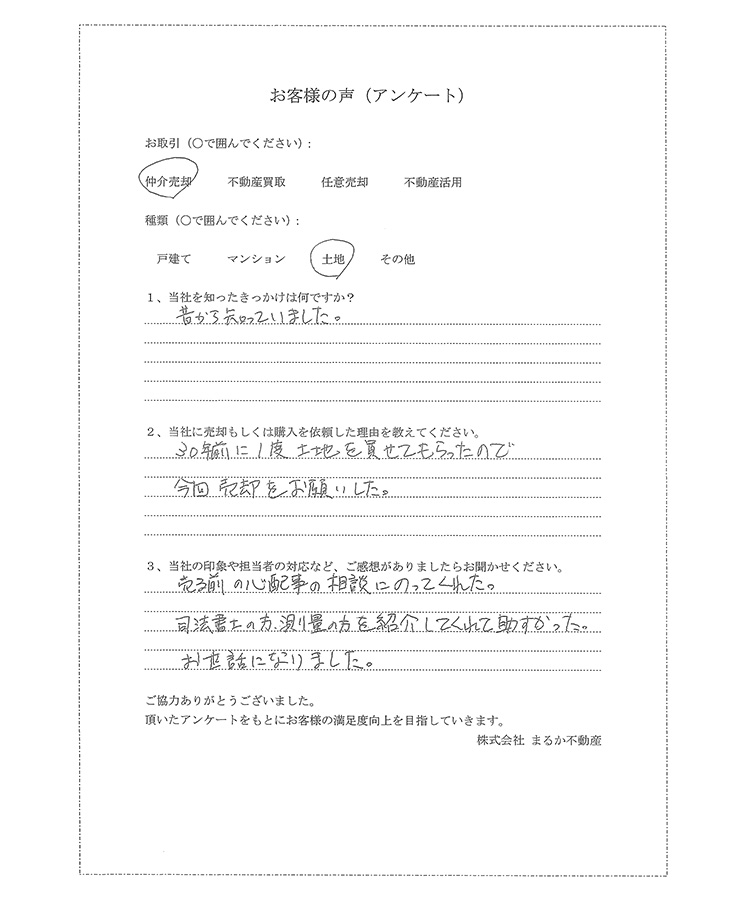 お客様の声（アンケート）
お取引（〇で囲んでください）:
仲介売却 不動産買取 任意売却 不動産活用
種類（〇で囲んでください）:
戸建て マンション 土地 その他
１、当社を知ったきっかけは何ですか？
昔から知っていました。
２、当社に売却もしくは購入を依頼した理由を教えてください。
30年前に1度 土地を買せてもらったので
今回 売却をお願いした。
３、当社の印象や担当者の対応など、ご感想がありましたらお聞かせください。
売る前の心配事の相談にのってくれた。
司法書士の方、測量の方を紹介してくれて助すかった。
お世話になりました。
ご協力ありがとうございました。
頂いたアンケートをもとにお客様の満足度向上を目指していきます。
株式会社 まるか不動産